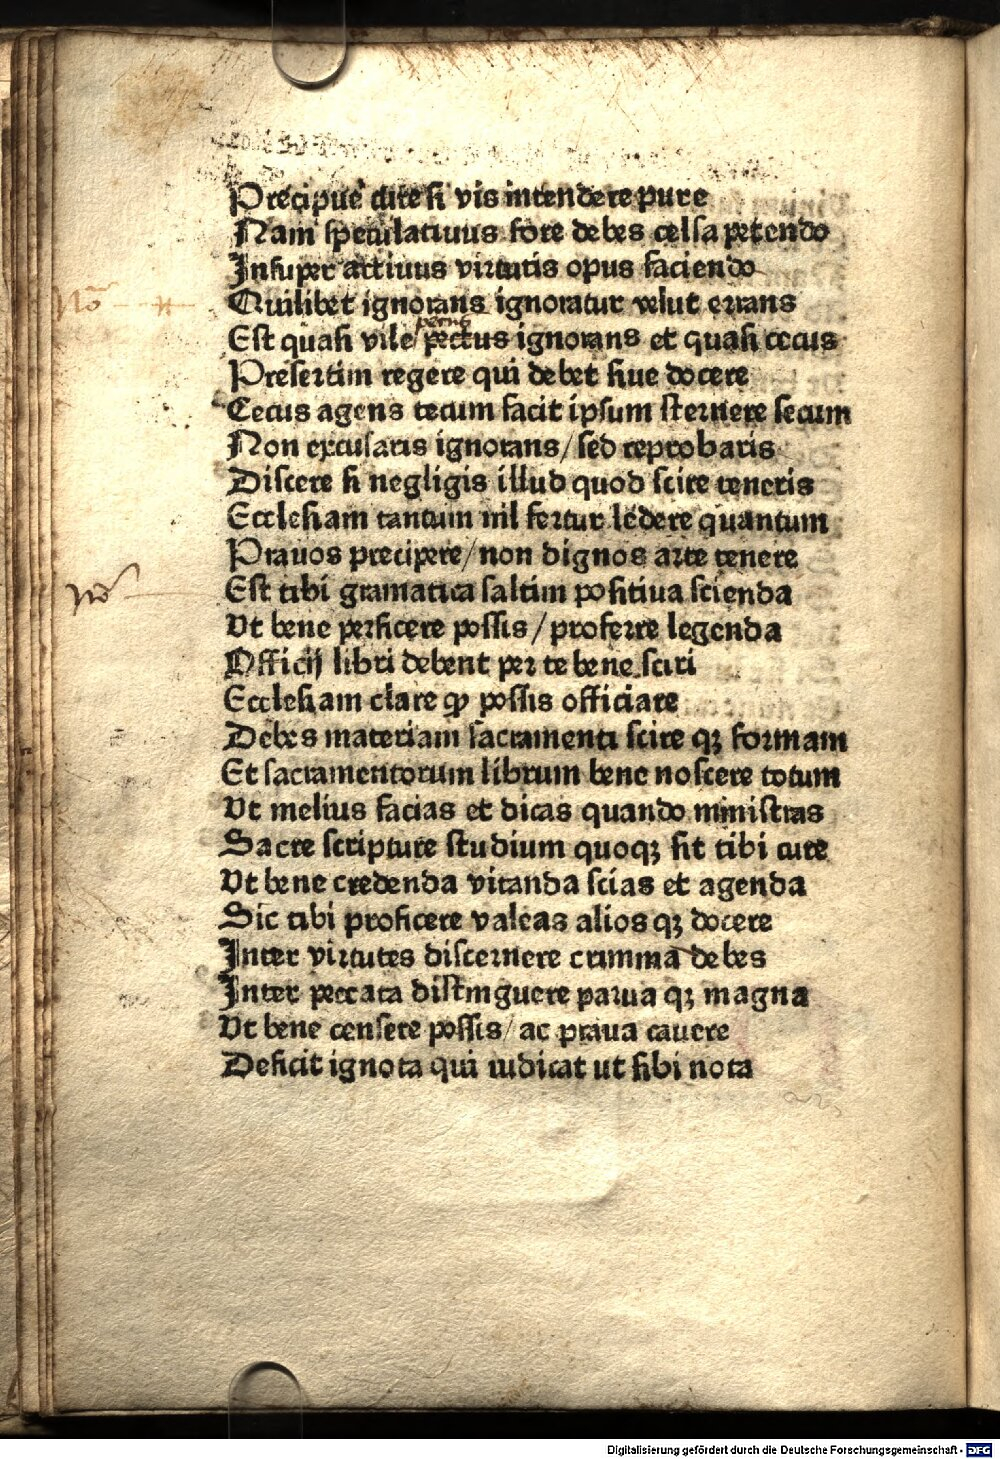 Precipue cure si vis intendere pure
Nam speculatiuus fore debes celsa petendo
Insuper actiuus virtutis opus faciendo
No
Quilibet ignorans ignoratur velut errans
Est quasi vile pectus ignorans et quasi cecus
Presertim regere qui debet siue docere
Cecus agens cecum facit ipsum sternere secum
Non excusaris ignorans/ sed reprobaris
Discere si negligis illud quod scire teneris
Ecclesiam tantum nil fertur ledere quantum
Prauos precipere/ non dignos arte tenere
No
Est tibi gramatica saltim positiua scienda
Vt bene perficere possis/ proferre legenda
Officij libri debent per te bene sciri
Ecclesiam clare ꝙ possis officiare
Debes materiam sacramenti scire qʒ formam
Et sacramentorum librum bene noscere totum
Vt melius facias et dicas quando ministras
Sacre scripture studium quoqʒ sit tibi cure
Vt bene credenda vitanda scias et agenda
Sic tibi proficere valeas alios qʒ docere
Inter virtutes discernere crimina debes
Inter peccata distinguere parua qʒ magna
Vt bene censere possis/ ac praua cauere
Deficit ignota qui iudicat ut sibi nota
Digitalisierung gefördert durch die Deutsche Forschungsgemeinschaft - DFG